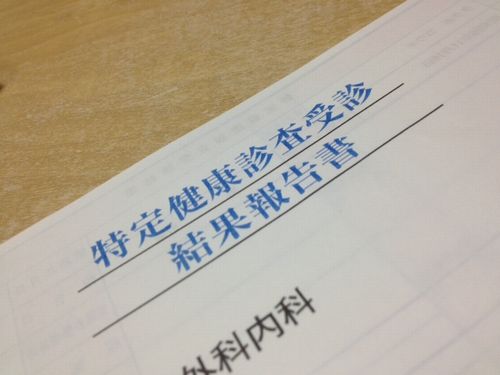 特定健康診査受診
結果報告書
外科内科